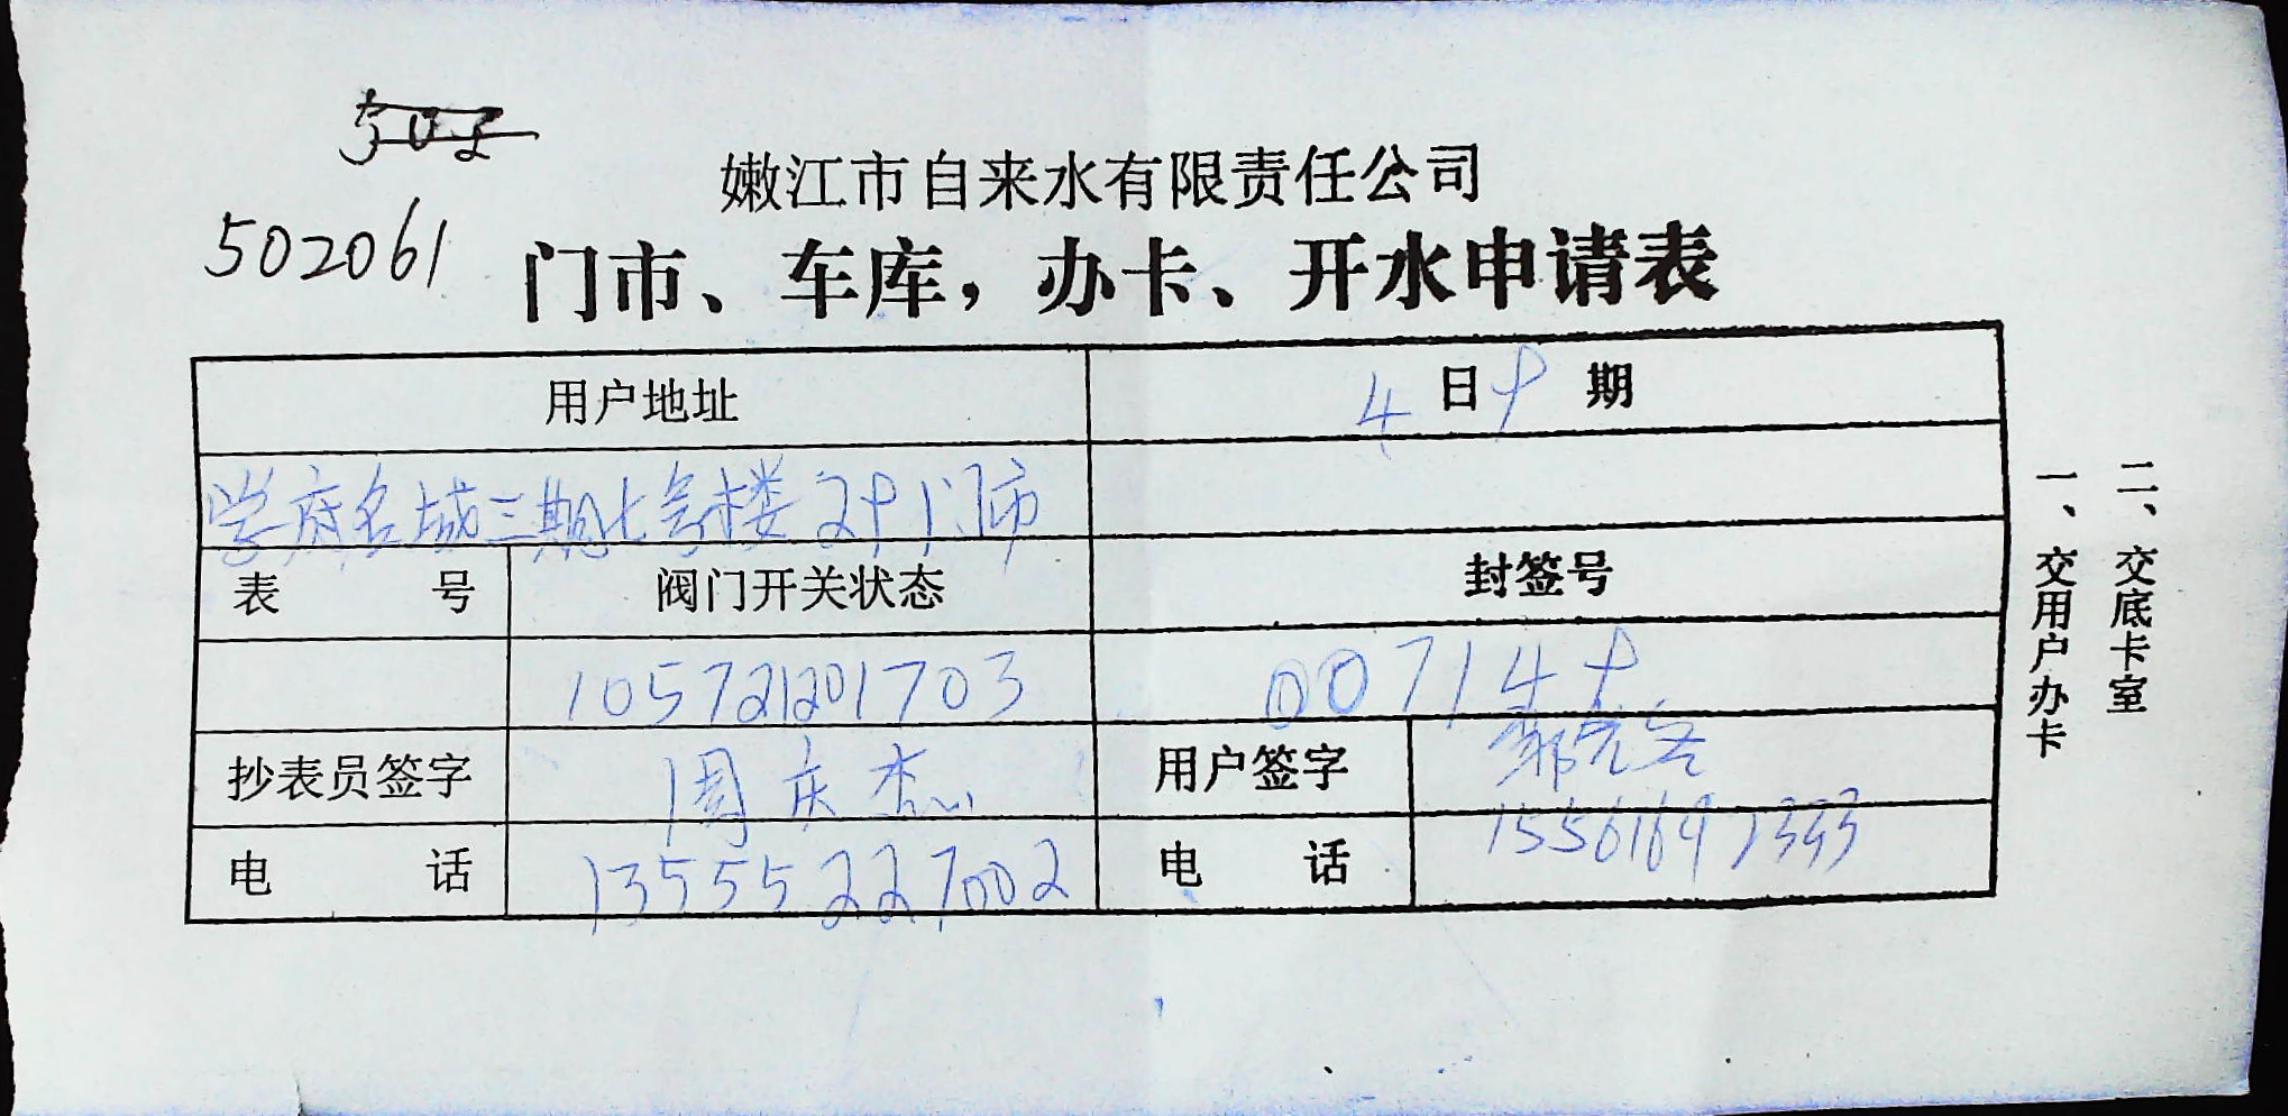 502061
嫩江市自来水有限责任公司
门市、车库，办卡、开水申请表
用户地址
日 期
学府名城三期七号楼
表 号
阀门开关状态
封签号
105721201703
抄表员签字
周庆杰
用户签字
电 话
13555227002
电 话
一、交用户办卡
二、交底卡室